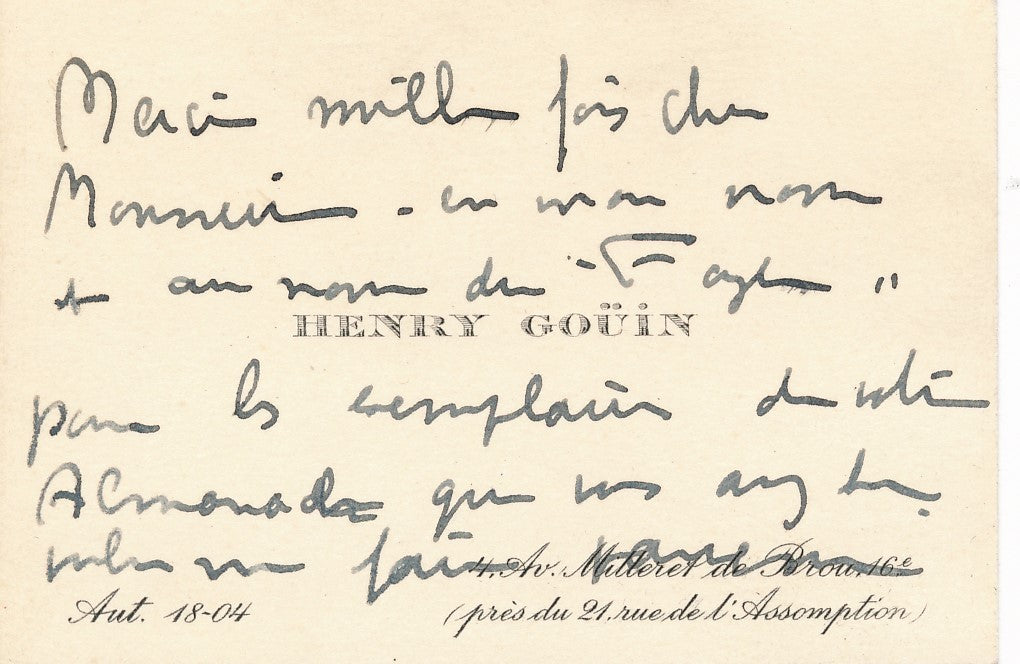 Merci mille fois cher
Monsieur - en mon nom
et au nom du "Foyer"
HENRY GOÜIN
pour les exemplaires de votre
Almanach que vous avez bien
voulu me faire
4, Av. Milleret de Brou, 16e
Aut. 18-04
(près du 21, rue de l'Assomption)